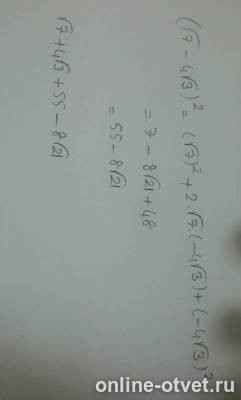 (√7 - 4√3)² = (√7)² + 2·√7·(-4√3) + (-4√3)²
= 7 - 8√21 + 48
= 55 - 8√21
√7 + 4√3 + 55 - 8√21
online-otvet.ru